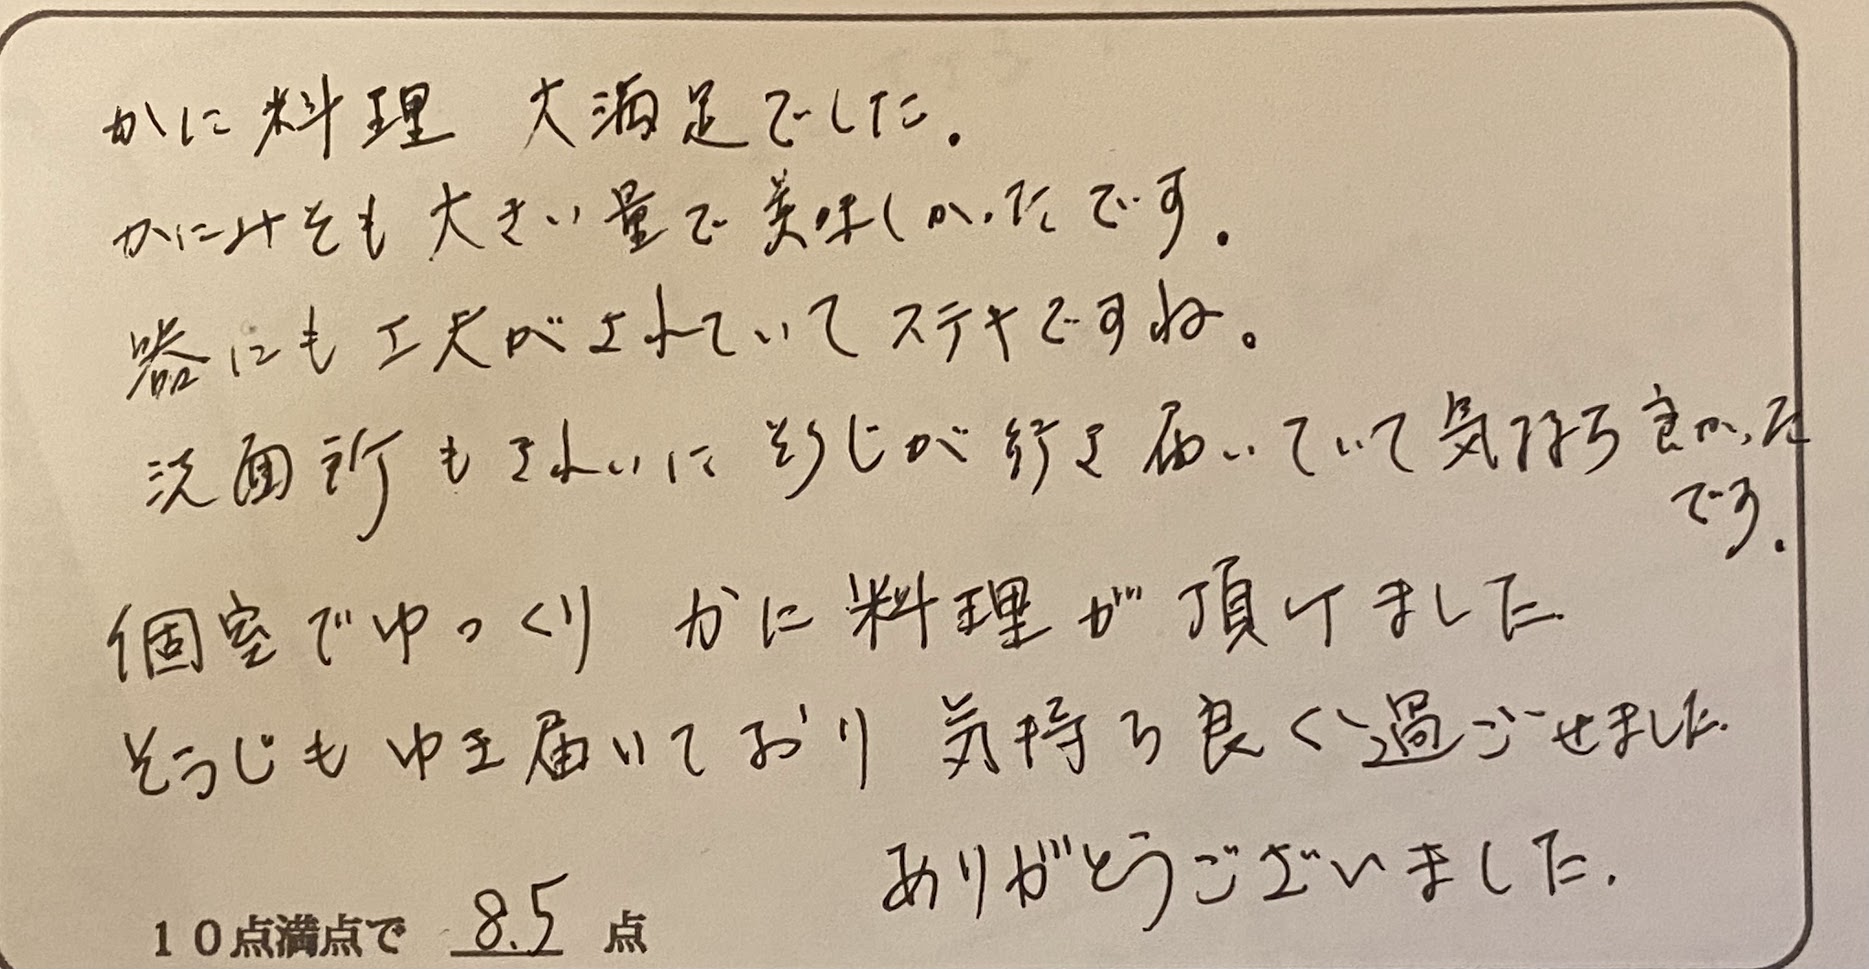 かに料理 大満足でした.
かにみそも大きい量で美味しかったです.
器にも工夫がされていてステキですね。
洗面所もきれいにそうじが行き届いていて気持ち良かった
です.
個室でゆっくり かに料理が頂けました
そうじもゆき届いており 気持ち良く過ごせました.
ありがとうございました.
10点満点で 8.5 点